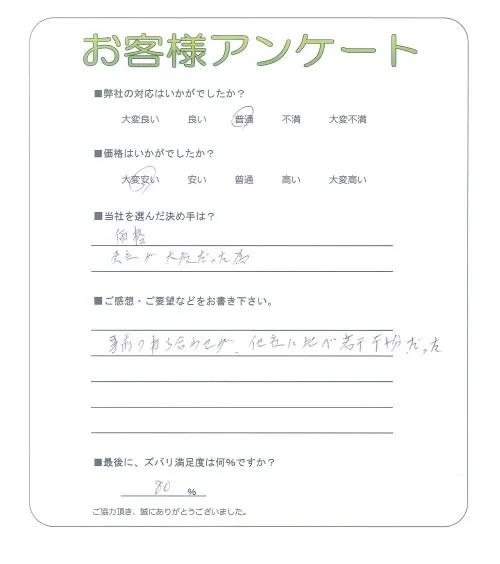 お客様アンケート
■弊社の対応はいかがでしたか？
大変良い 良い 普通 不満 大変不満
■価格はいかがでしたか？
大変安い 安い 普通 高い 大変高い
■当社を選んだ決め手は？
価格
が大阪だった為
■ご感想・ご要望などをお書き下さい。
事前の打ち合わせが、他社に比べ若干だった
■最後に、ズバリ満足度は何%ですか？
80 %
ご協力頂き、誠にありがとうございました。